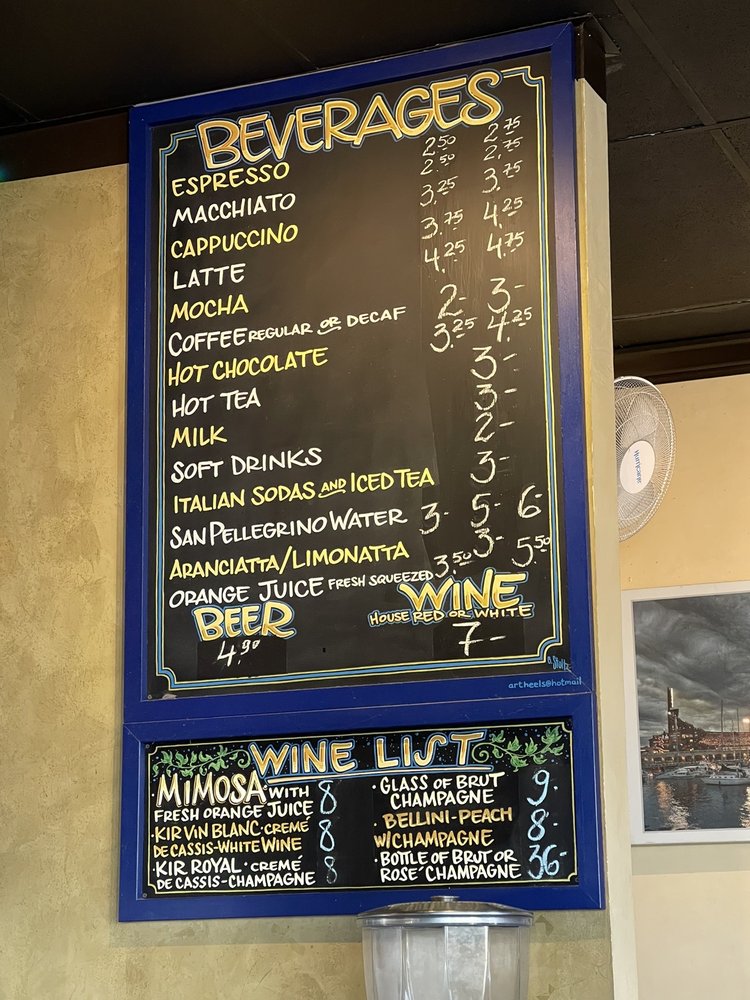 BEVERAGES
ESPRESSO 2.50 2.75
MACCHIATO 2.50 2.75
CAPPUCCINO 3.25 3.75
LATTE 3.75 4.25
MOCHA 4.25 4.75
COFFEE REGULAR OR DECAF 2- 3-
HOT CHOCOLATE 3.25 4.25
HOT TEA 3-
MILK 3-
SOFT DRINKS 2-
ITALIAN SODAS AND ICED TEA 3-
SAN PELLEGRINO WATER 3- 5- 6-
ARANCIATTA/LIMONATTA 3-
ORANGE JUICE FRESH SQUEEZED 3.50 5.50
BEER
4.90
WINE
HOUSE RED OR WHITE
7-
B. Stoltz
artheels@hotmail
WINE LIST
MIMOSA WITH
FRESH ORANGE JUICE 8
·KIR VIN BLANC·CREMÉ
DE CASSIS-WHITE WINE 8
·KIR ROYAL·CREMÉ
DE CASSIS-CHAMPAGNE 8
·GLASS OF BRUT
CHAMPAGNE 9-
·BELLINI-PEACH
W/CHAMPAGNE 8-
·BOTTLE OF BRUT OR
ROSE´ CHAMPAGNE 36-